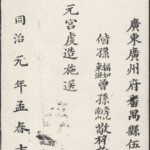 廣東廣州府番禺縣伍
偕孫 曾孫 敬刊
元宮虔造施送
同治元年孟春